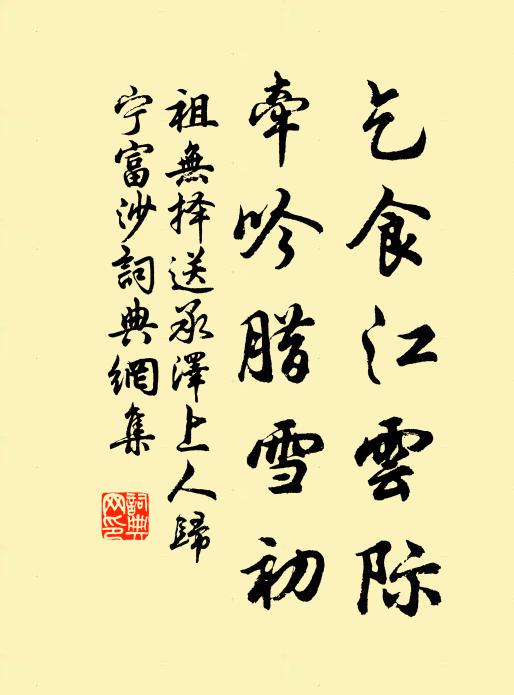 乞食江雲际
牵吟腊雪初
祖無择送承澤上人歸
宁富沙詞典網集
詞典
网印